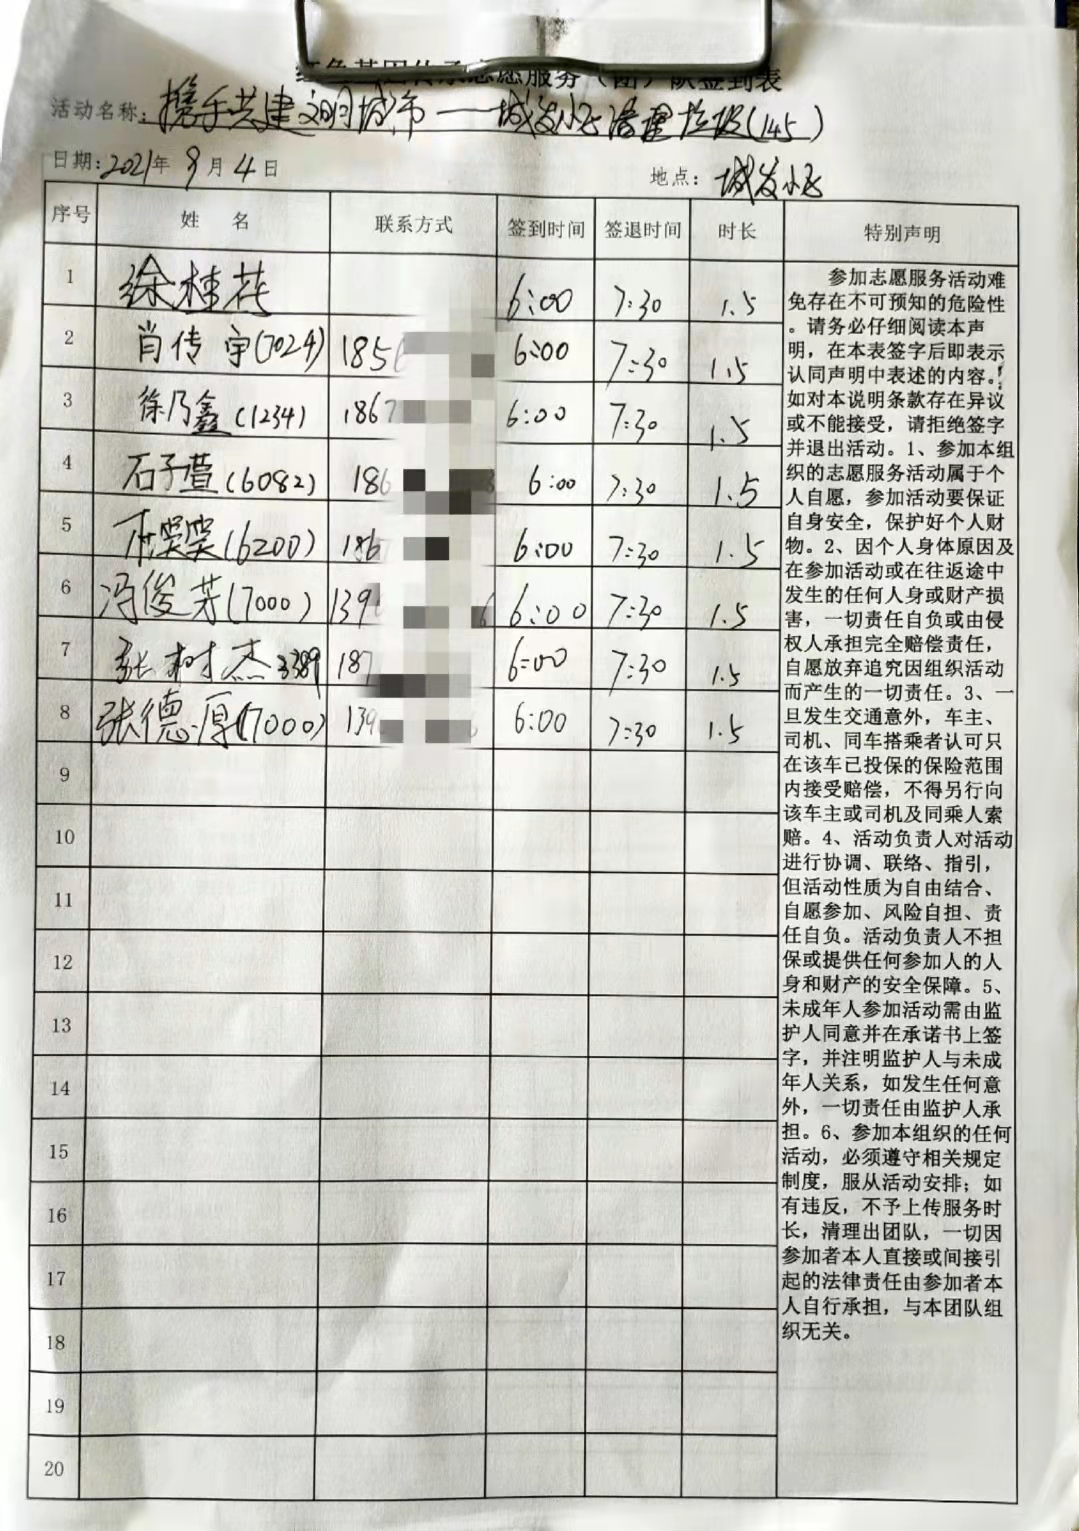 红色基因传承志愿服务(团)队签到表
活动名称:携手共建文明城市——城发小区清理垃圾(145)
日期:2021年9月4日 地点:城发小区
序号 姓 名 联系方式 签到时间 签退时间 时长 特别声明
1 徐桂花 6:00 7:30 1.5
2 肖传宇(7024) 185 6:00 7:30 1.5
3 徐乃鑫(1234) 1867 6:00 7:30 1.5
4 石子萱(6082) 186 6:00 7:30 1.5
5 笑笑(6200) 186 6:00 7:30 1.5
6 冯俊芳(7000) 139 6:00 7:30 1.5
7 张树杰3389 187 6:00 7:30 1.5
8 张德厚(7000) 139 6:00 7:30 1.5
9
10
11
12
13
14
15
16
17
18
19
20
参加志愿服务活动难
免存在不可预知的危险性
。请务必仔细阅读本声
明,在本表签字后即表示
认同声明中表述的内容。
如对本说明条款存在异议
或不能接受,请拒绝签字
并退出活动。1、参加本组
织的志愿服务活动属于个
人自愿,参加活动要保证
自身安全,保护好个人财
物。2、因个人身体原因及
在参加活动或在往返途中
发生的任何人身或财产损
害,一切责任自负或由侵
权人承担完全赔偿责任,
自愿放弃追究因组织活动
而产生的一切责任。3、一
旦发生交通意外,车主、
司机、同车搭乘者认可只
在该车已投保的保险范围
内接受赔偿,不得另行向
该车主或司机及同乘人索
赔。4、活动负责人对活动
进行协调、联络、指引,
但活动性质为自由结合、
自愿参加、风险自担、责
任自负。活动负责人不担
保或提供任何参加人的人
身和财产的安全保障。5、
未成年人参加活动需由监
护人同意并在承诺书上签
字,并注明监护人与未成
年人关系,如发生任何意
外,一切责任由监护人承
担。6、参加本组织的任何
活动,必须遵守相关规定
制度,服从活动安排;如
有违反,不予上传服务时
长,清理出团队,一切因
参加者本人直接或间接引
起的法律责任由参加者本
人自行承担,与本团队组
织无关。